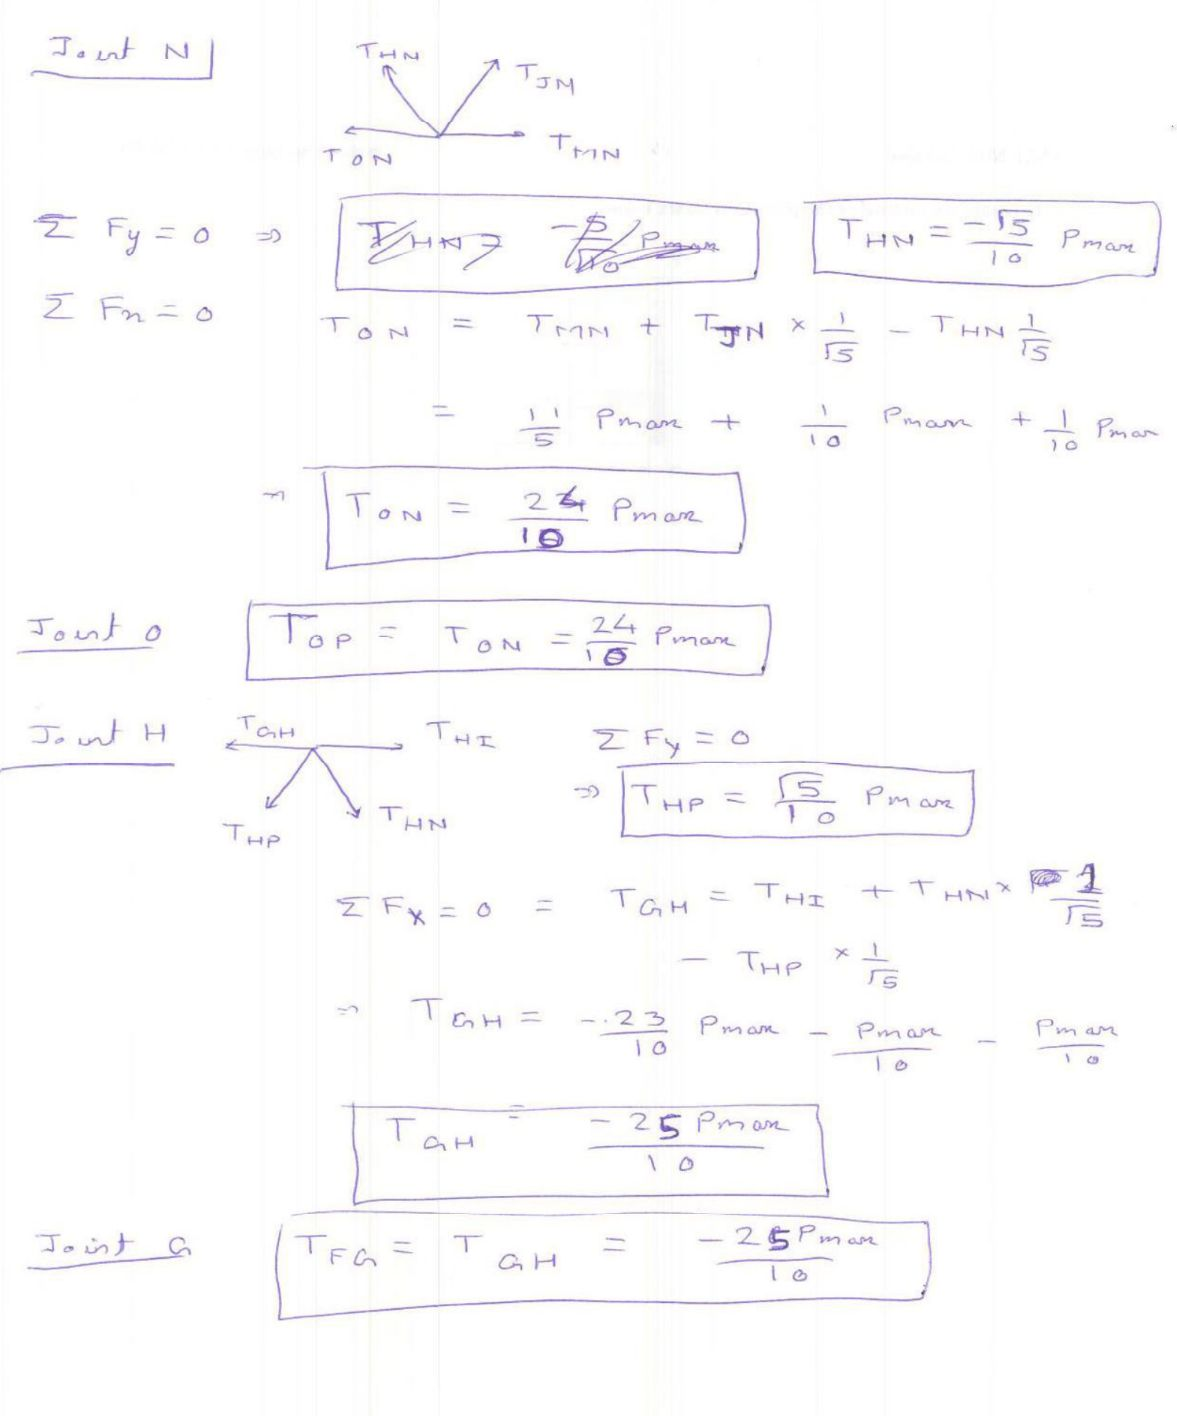 Joint N
T_HN
T_JM
T_ON
T_MN
Σ Fy = 0 ⇒ T_HN = -√5/10 Pmax
Σ Fx = 0 T_ON = T_MN + T_JN × 1/√5 - T_HN 1/√5
= 11/5 Pmax + 1/10 Pmax + 1/10 Pmax
⇒ T_ON = 24/10 Pmax
Joint O T_OP = T_ON = 24/10 Pmax
Joint H T_GH T_HI Σ Fy = 0
T_HP T_HN ⇒ T_HP = √5/10 Pmax
Σ Fx = 0 = T_GH = T_HI + T_HN × 1/√5
- T_HP × 1/√5
⇒ T_GH = -23/10 Pmax - Pmax/10 - Pmax/10
T_GH = -25 Pmax/10
Joint G T_FG = T_GH = -25 Pmax/10